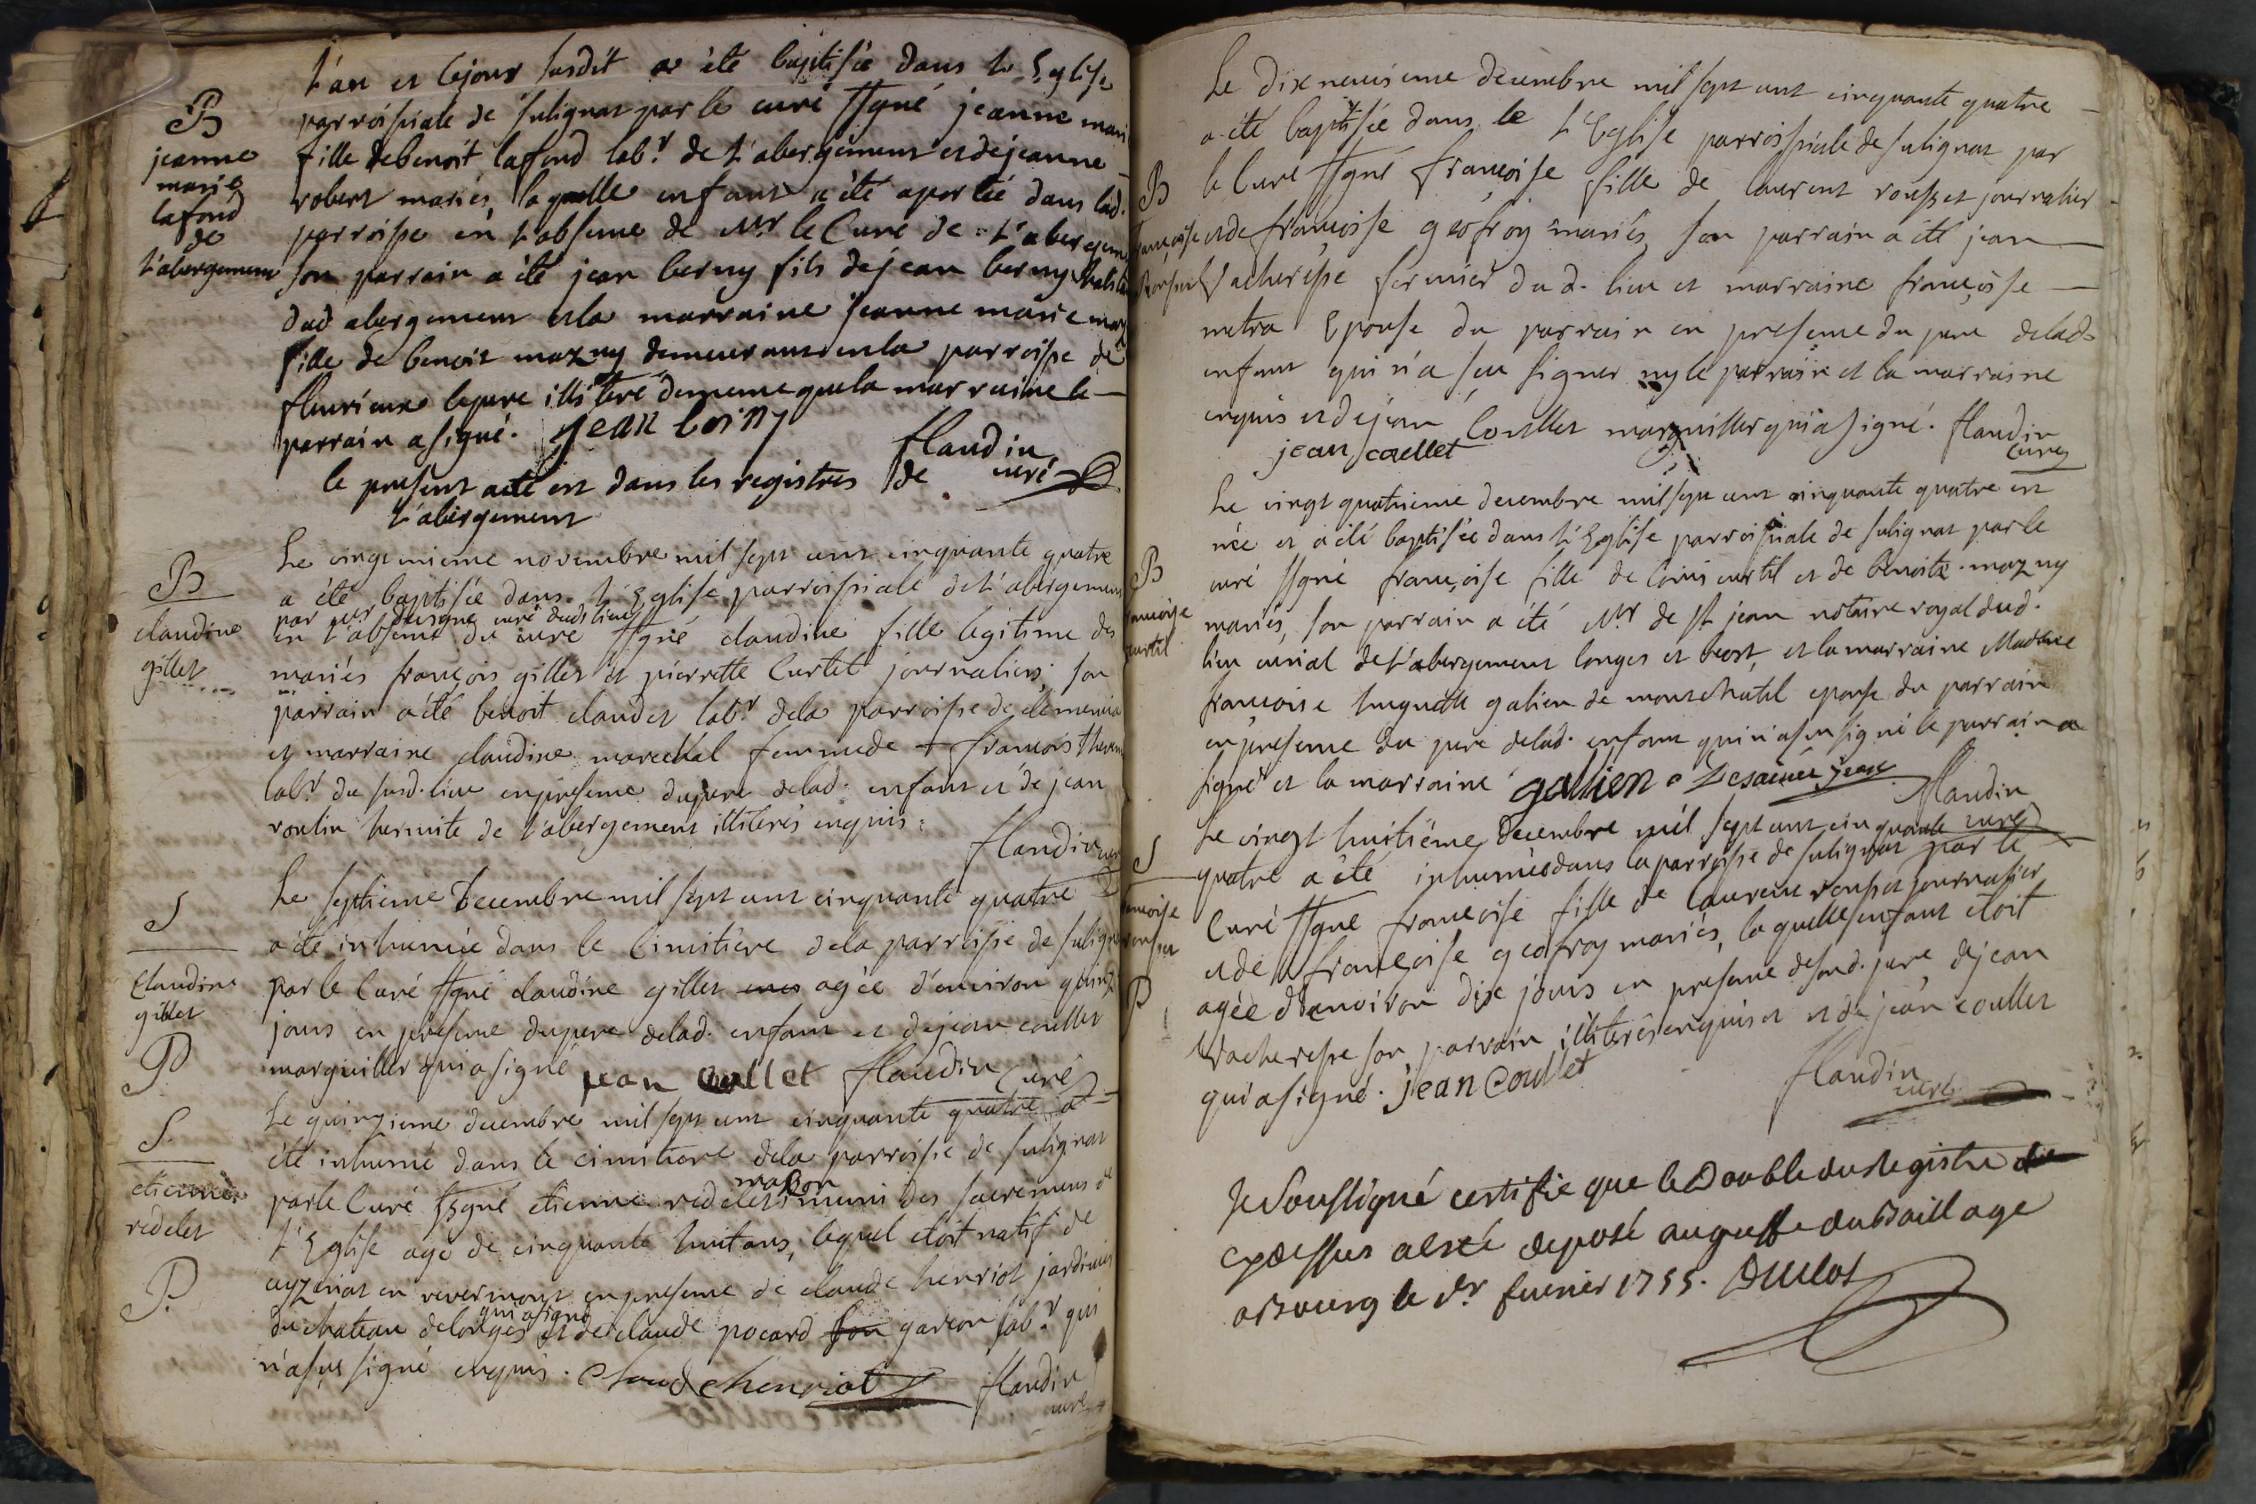 B
jeanne
marie
lafond
de
l'abergement
L'an et lejour susdit a été baptisée dans l'Eglise
parroissiale de sulignat par le curé ssgné jeanne mari
fille debenoit lafond labr. de l'abergement et dejeanne
robert mariés, laquelle enfant a été aportée dans lad.
parroisse en l'absence de Mr le Curé de l'abergem
son parrain a été jean berny fils dejean berny
dud abergement et la marraine jeanne marie maz
fille de benoit mazuy demeurant en la parroisse de
fleurieux lepere illiteré dememe que la marraine le
parrain a signé. jean berny
flandin
curé
le present acte est dans les registres de
l'abergement
B
claudine
gillet
Le vingt unieme novembre mil sept cent cinquante quatre
a été baptisée dans l'Eglise parroissiale de l'abergement
par curé dudt lieu
en l'absence du curé ssgné claudine fille legitime des
mariés françois gillet et pierrette Curtet journaliers; son
parrain a été benoit claudet labr. dela parroisse de
et marraine claudine marechal femme de + francois
labr. du susd. lieu en presence dupere delad. enfant et de jean
roulin hermite de l'abergement illiterés enquis.
flandin curé
S
Claudine
gillet
P
Le septieme Decembre mil sept cent cinquante quatre
a été inhumée dans le Cimitière dela parroisse de suligna
par le Curé ssgné claudine gillet agée d'environ quinze
jours en presence dupere delad. enfant et dejean coullet
marguiller qui a signé jean Coullet flandin Curé
S
etienne
redelet
P.
Le quinzieme decembre mil sept cent cinquante quatre a
été inhumé dans le cimitiere dela parroisse de sulignat
maçon
par le Curé ssgné etienne redelet muni des sacremens de
l'Eglise agé de cinquante huit ans, lequel etoit natif de
en revermont en presence de claude henriot jardinier
qui a signé
du chateau delonges et de claude pocard son garçon labr. qui
n'a sus signé enquis. Claude henriot flandin
curé
B
françoise
Rousset
Le dixneuvieme decembre mil sept cent cinquante quatre
a été baptisée dans le L'Eglise parroissiale de sulignat par
le Curé ssgné françoise fille de laurent rousset journalier
et de françoise geofroy mariés, son parrain a été jean
Vacheresse fermier du d. lieu et marraine françoise
metra Epouse du parrain en presence du pere delad
enfant qui n'a seu signer ny le parrain et la marraine
enquis et dejean Coullet marguiller qui a signé. flandin
jean coullet
curé
B
francoise
curtil
Le vingt quatrieme decembre mil sept cent cinquante quatre est
née et a été baptisée dans l'Eglise parroissiale de sulignat par le
curé ssgné françoise fille de louis curtil et de benoite mazuy
mariés, son parrain a été Mr de st jean notaire royal dud.
lieu curial de l'abergement longes et beost, et la marraine Madme
françoise huguette galien de epouse du parrain
en presence du pere delad. enfant qui n'a seu signé le parrain a
signé et la marraine galien
flandin
curé
S
francoise
rousset
P
Le vingt huitiême Decembre mil sept cent cinquante
quatre a été inhumée dans la parroisse de sulignat par le
Curé ssgné françoise fille de laurent rousset journalier
et de françoise geofroy mariés, laquelle enfant etoit
agée d'environ dix jours en presence de sond. pere, dejean
Vacheresse son parrain illiterés enquis et de jean coullet
qui a signé. jean Coullet
flandin
curé
Je Soussigné certifie que le Double du Registre
cydessus a esté deposé au greffe du Baillage
a Bourg le 1er fevrier 1755.